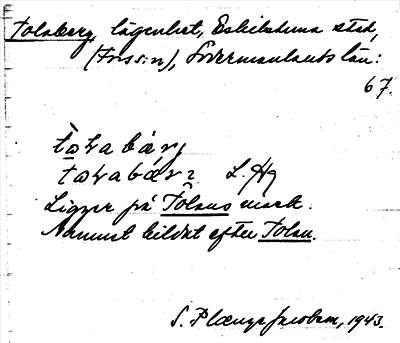 Tolaberg, lägenhet, Eskilstuna stad,
(Fors:n), Södermanlands län:
67.
tɷ̀ƕabárj
L. Hg
Ligger på Tolans mark.
Namnet bildat efter Tolan.
S. Plænge Jacobson, 1943.